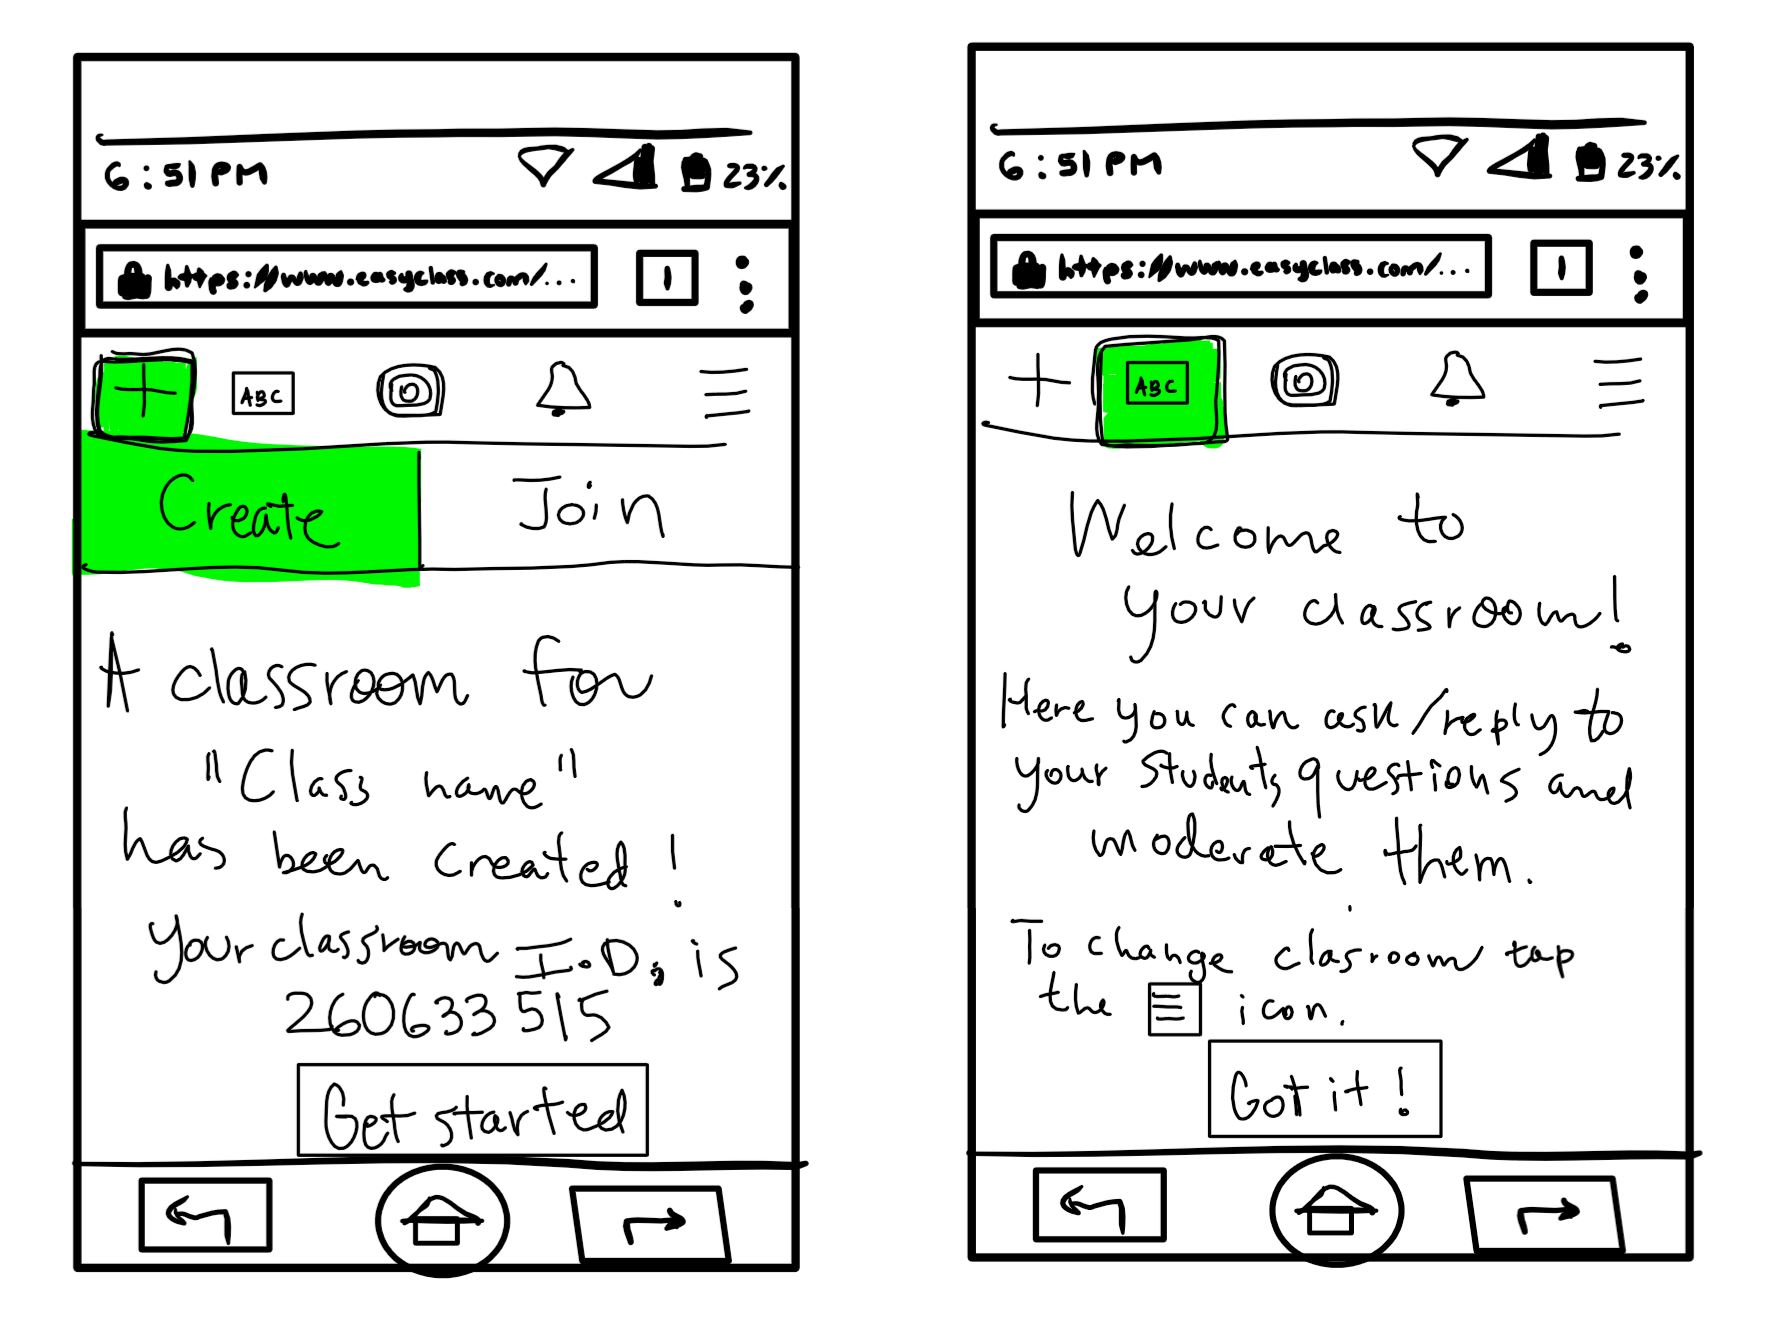 6:51 PM 23%
https://www.easyclass.com/... 1
ABC
Create Join
A classroom for
"Class name"
has been created!
Your classroom I.D. is
260633515
Get started
6:51 PM 23%
https://www.easyclass.com/... 1
ABC
Welcome to
your classroom!
Here you can ask/reply to
your students questions and
moderate them.
To change clasroom tap
the icon.
Got it!